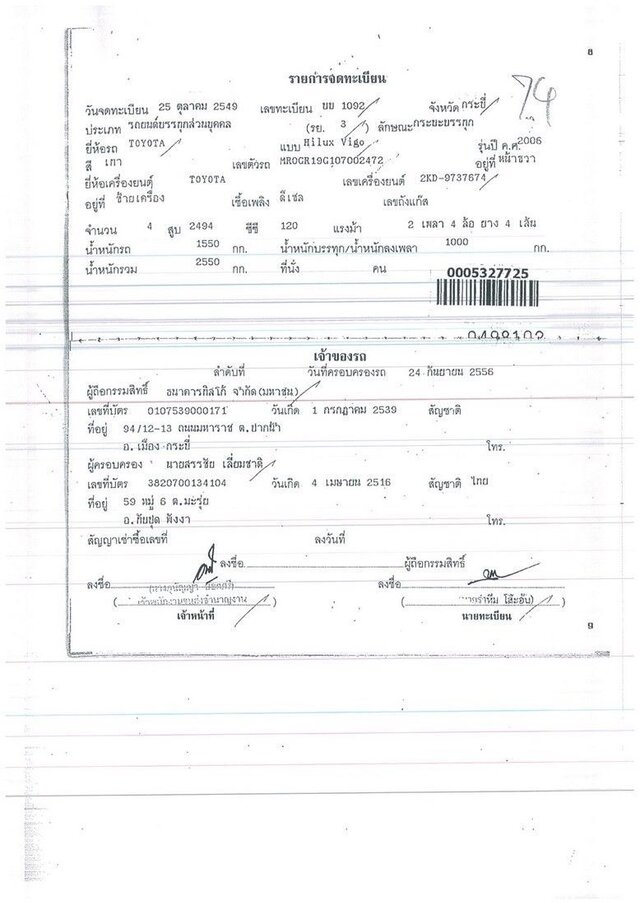 8
รายการจดทะเบียน
74
วันจดทะเบียน 25 ตุลาคม 2549 เลขทะเบียน บบ 1092 จังหวัด กระบี่
ประเภท รถยนต์บรรทุกส่วนบุคคล (รย. 3 ) ลักษณะ กระบะบรรทุก
ยี่ห้อรถ TOYOTA แบบ Hilux Vigo รุ่นปี ค.ศ. 2006
สี เทา เลขตัวรถ MR0GR19G107002472 อยู่ที่ หน้าขวา
ยี่ห้อเครื่องยนต์ TOYOTA เลขเครื่องยนต์ 2KD-9737674
อยู่ที่ ซ้ายเครื่อง เชื้อเพลิง ดีเซล เลขถังแก๊ส
จำนวน 4 สูบ 2494 ซีซี 120 แรงม้า 2 เพลา 4 ล้อ ยาง 4 เส้น
น้ำหนักรถ 1550 กก. น้ำหนักบรรทุก/น้ำหนักลงเพลา 1000 กก.
น้ำหนักรวม 2550 กก. ที่นั่ง คน
0005327725
เจ้าของรถ
ลำดับที่ วันที่ครอบครองรถ 24 กันยายน 2556
ผู้ถือกรรมสิทธิ์ ธนาคารทิสโก้ จำกัด (มหาชน)
เลขที่บัตร 0107539000171 วันเกิด 1 กรกฎาคม 2539 สัญชาติ
ที่อยู่ 94/12-13 ถนนมหาราช ต.ปากน้ำ
อ.เมือง กระบี่ โทร.
ผู้ครอบครอง นายสรรชัย เลี่ยมชาติ
เลขที่บัตร 3820700134104 วันเกิด 4 เมษายน 2516 สัญชาติ ไทย
ที่อยู่ 59 หมู่ 6 ต.มะรุ่ย
อ.ทับปุด พังงา โทร.
สัญญาเช่าซื้อเลขที่ ลงวันที่
ลงชื่อ ผู้ถือกรรมสิทธิ์
ลงชื่อ ลงชื่อ
เจ้าหน้าที่ นายทะเบียน
9